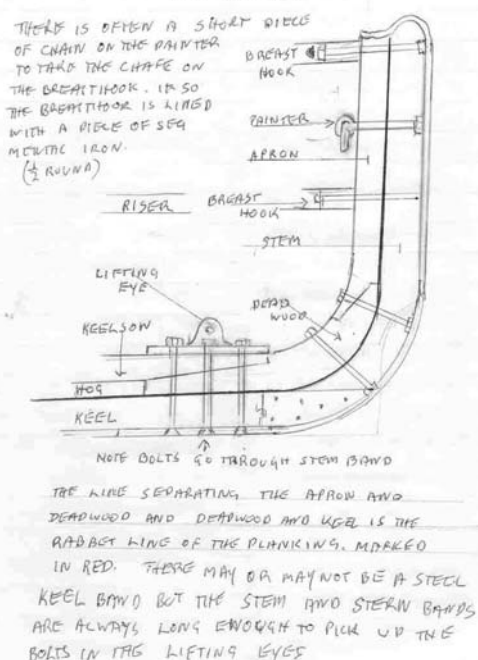 THERE IS OFTEN A SHORT PIECE
OF CHAIN ON THE PAINTER
TO TAKE THE CHAFE ON
THE BREASTHOOK. IF SO
THE BREASTHOOK IS LINED
WITH A PIECE OF SEG
MENTAL IRON.
(½ ROUND)
BREAST
HOOK
PAINTER
APRON
RISER
BREAST
HOOK
STEM
LIFTING
EYE
DEAD
WOOD
KEELSON
HOG
KEEL
NOTE BOLTS GO THROUGH STEM BAND
THE LINE SEPARATING THE APRON AND
DEADWOOD AND DEADWOOD AND KEEL IS THE
RABBET LINE OF THE PLANKING. MARKED
IN RED. THERE MAY OR MAY NOT BE A STEEL
KEEL BAND BUT THE STEM AND STERN BANDS
ARE ALWAYS LONG ENOUGH TO PICK UP THE
BOLTS IN THE LIFTING EYES